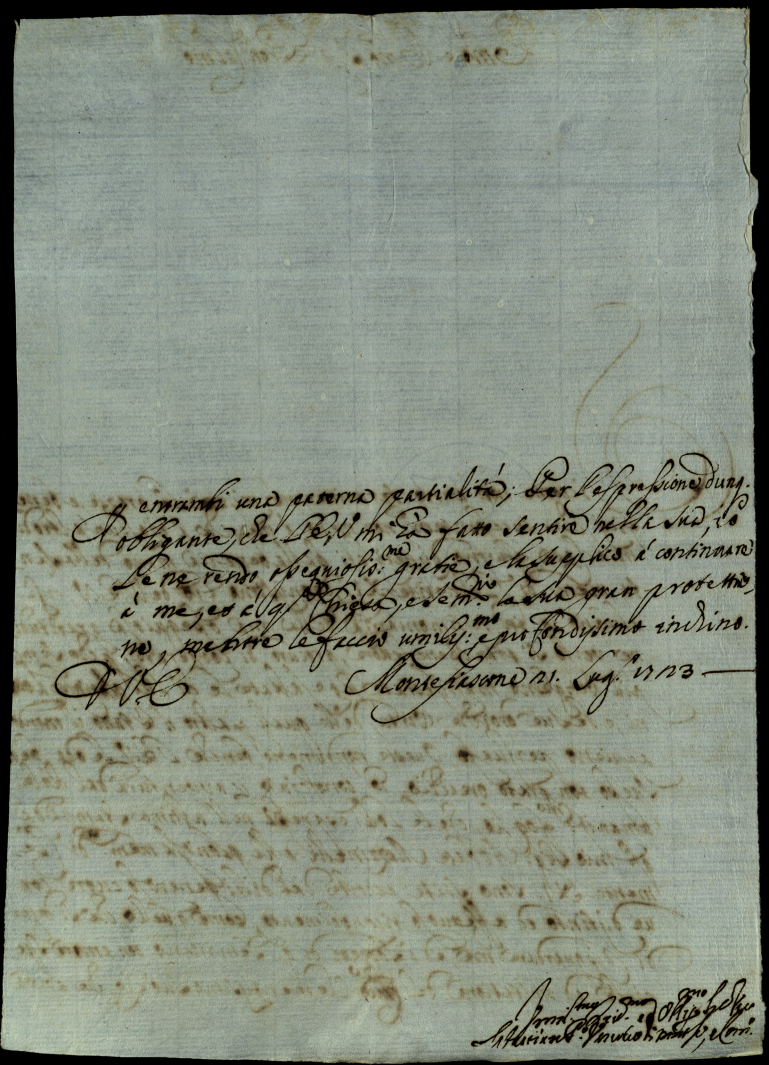 entrambi una paterna partialità; Per l'espressione dunq.
obligante, che l'E.V. mi hà fatto sentire nella sua, io
Le ne rendo ossequiosis.me gratie, e la supplico à continuare
à me, et à q.ta Chiesa, e Sem.rio la sua gran protettio,
ne, mentre le faccio umilis.mo e profondissimo inchino.
D V. E. Montefiascone 21. Lug.o 1723